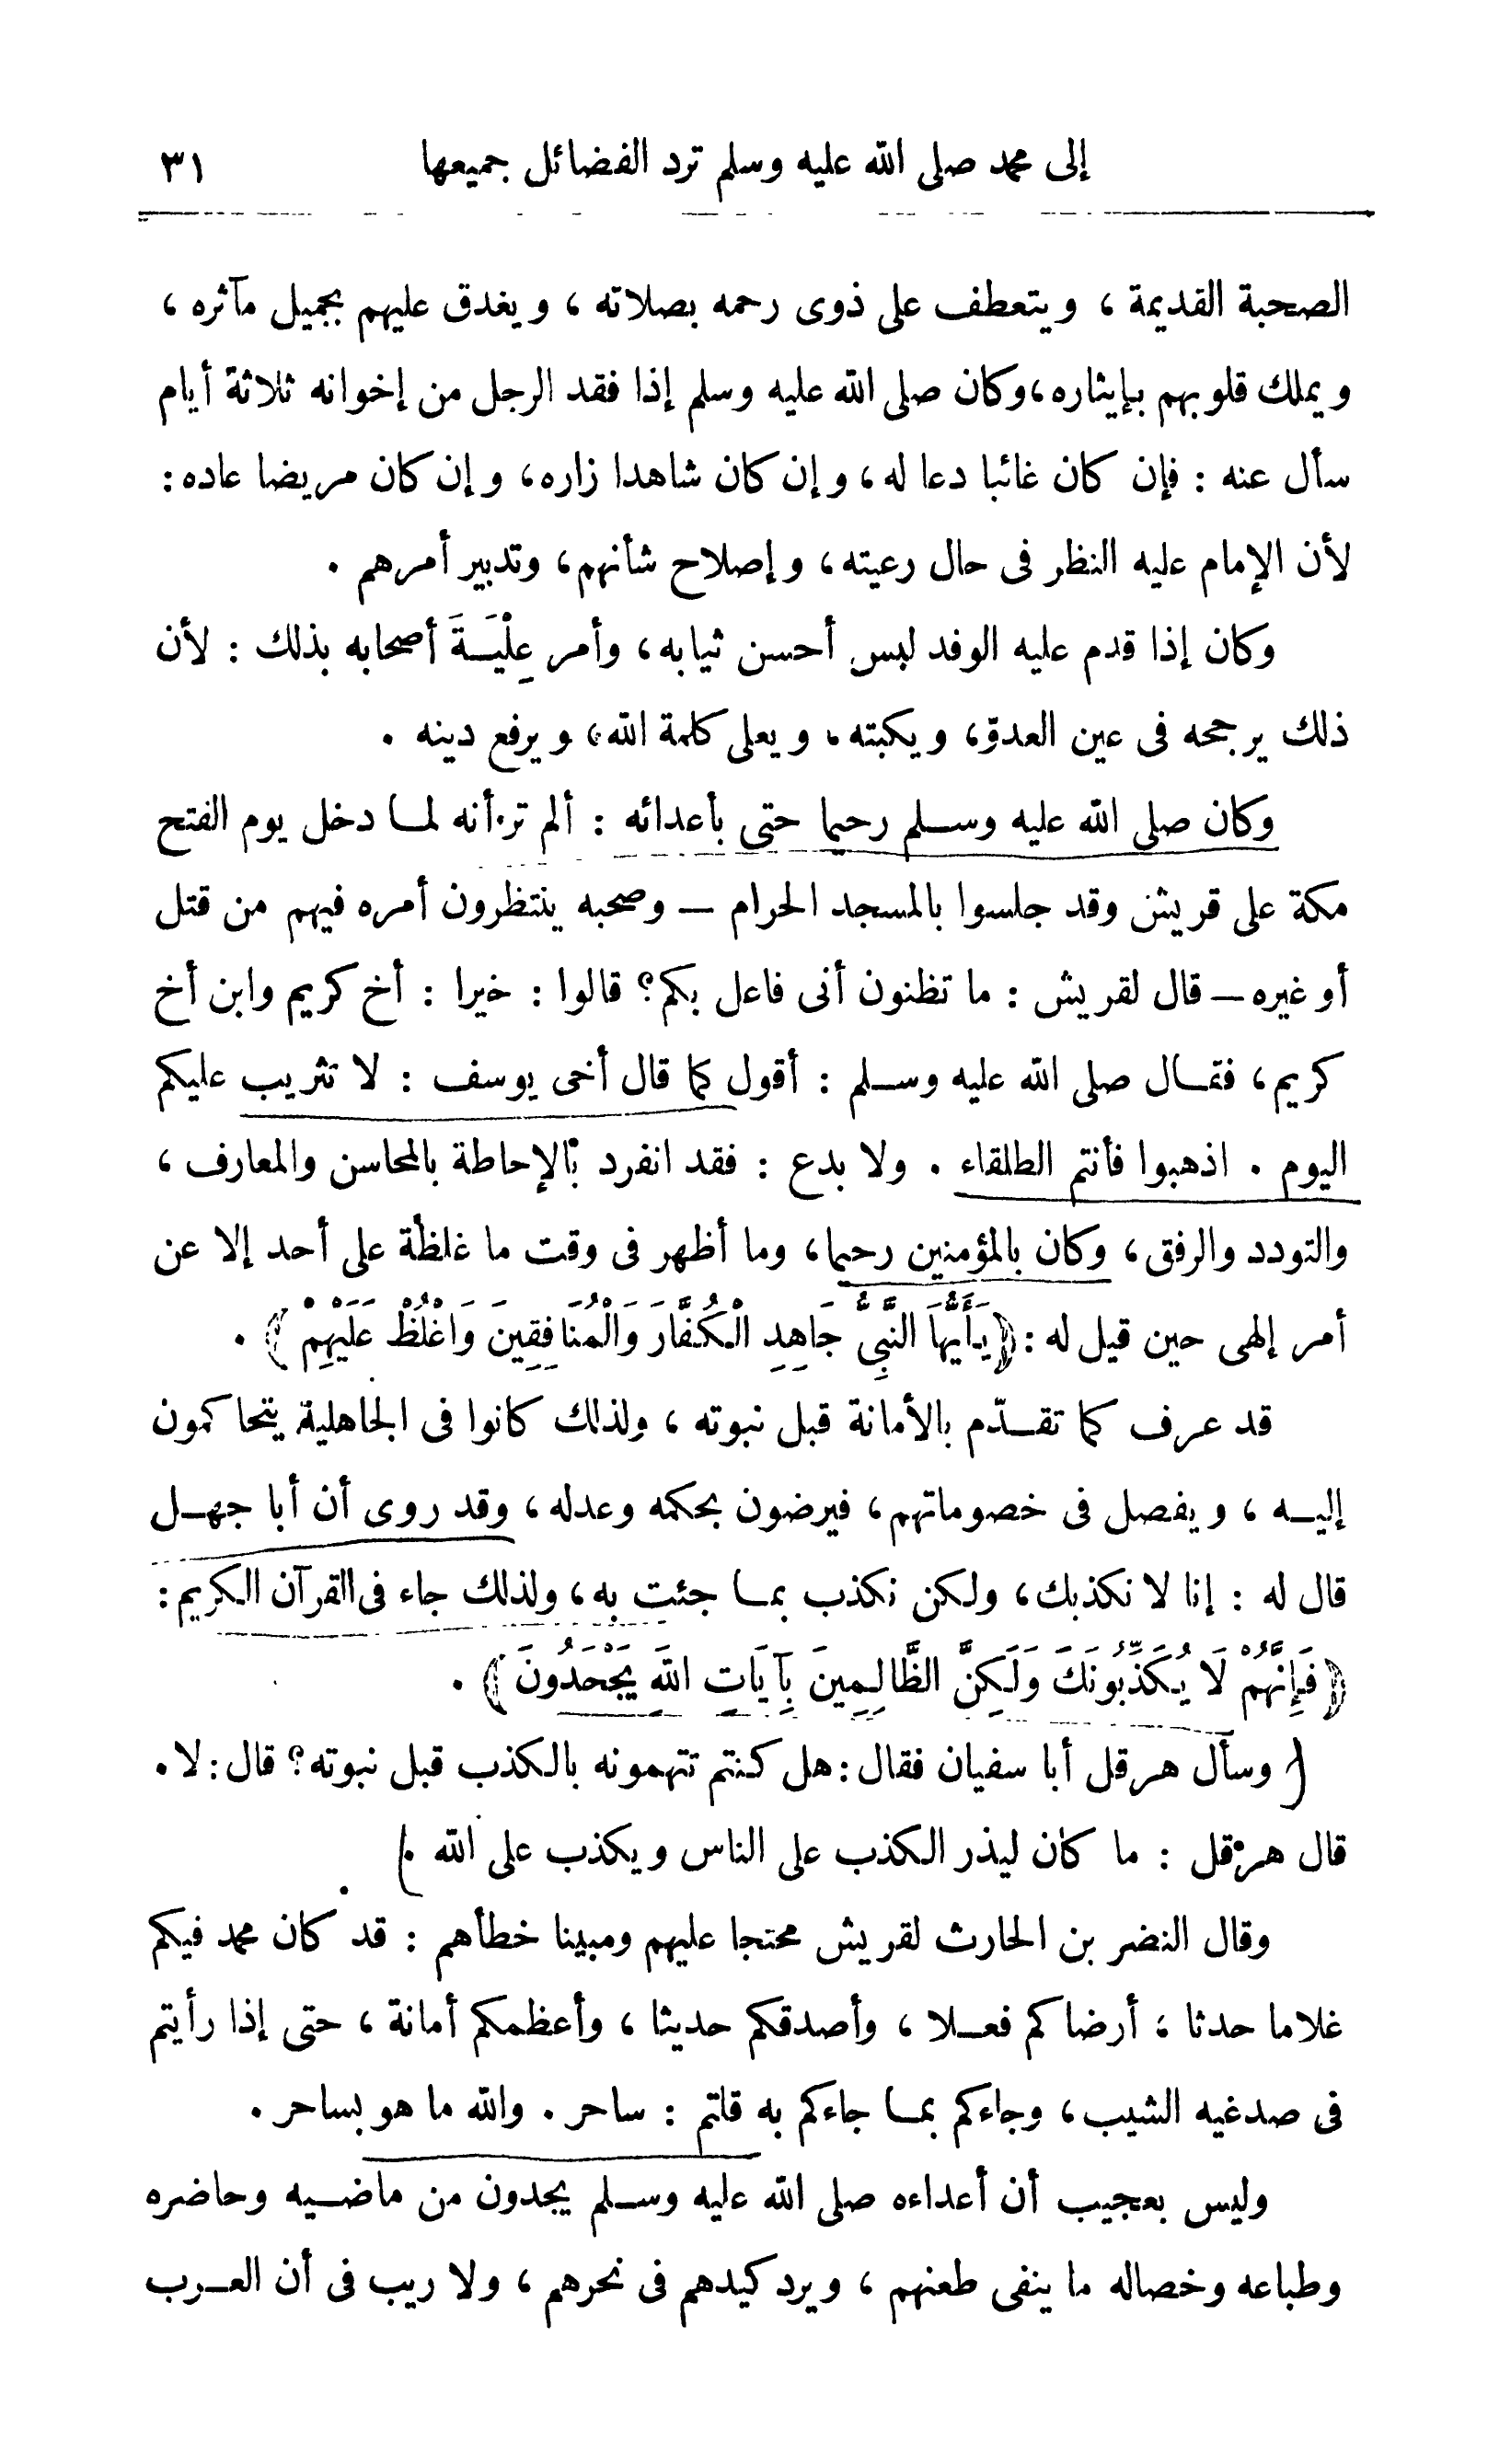 إلى محمد صلى الله عليه وسلم ترد الفضائل جميعها ٣١
الصحبة القديمة ، ويتعطف على ذوى رحمه بصلاته ، ويغدق عليهم بجميل مآثره ،
ويملك قلوبهم بإيثاره ، وكان صلى الله عليه وسلم إذا فقد الرجل من إخوانه ثلاثة أيام
سأل عنه : فإن كان غائبا دعا له ، وإن كان شاهدا زاره ، وإن كان مريضا عاده :
لأن الإمام عليه النظر فى حال رعيته ، وإصلاح شأنهم ، وتدبير أمرهم .
وكان إذا قدم عليه الوفد لبس أحسن ثيابه ، وأمر عِلْيَـةَ أصحابه بذلك : لأن
ذلك يرجحه فى عين العدوّ ، ويكبته ، ويعلى كلمة الله ، ويرفع دينه .
وكان صلى الله عليه وسلم رحيما حتى بأعدائه : ألم تر أنه لما دخل يوم الفتح
مكة على قريش وقد جلسوا بالمسجد الحرام — وصحبه ينتظرون أمره فيهم من قتل
أو غيره — قال لقريش : ما تظنون أنى فاعل بكم ؟ قالوا : خيرا : أخ كريم وابن أخ
كريم ، فقال صلى الله عليه وسلم : أقول كما قال أخى يوسف : لا تثريب عليكم
اليوم . اذهبوا فأنتم الطلقاء . ولا بدع : فقد انفرد بالإحاطة بالمحاسن والمعارف ،
والتودد والرفق ، وكان بالمؤمنين رحيما ، وما أظهر فى وقت ما غلظة على أحد إلا عن
أمر إلهى حين قيل له : ﴿ يَأَيُّهَا النَّبِىُّ جَاهِدِ الْكُفَّارَ وَالْمُنَافِقِينَ وَاغْلُظْ عَلَيْهِمْ ﴾ .
قد عرف كما تقدّم بالأمانة قبل نبوته ، ولذلك كانوا فى الجاهلية يتحاكمون
إليه ، ويفصل فى خصوماتهم ، فيرضون بحكمه وعدله ، وقد روى أن أبا جهل
قال له : إنا لا نكذبك ، ولكن نكذب بما جئت به ، ولذلك جاء فى القرآن الكريم :
﴿ فَإِنَّهُمْ لَا يُكَذِّبُونَكَ وَلَكِنَّ الظَّالِمِينَ بِآيَاتِ اللهِ يَجْحَدُونَ ﴾ .
( وسأل هرقل أبا سفيان فقال : هل كنتم تتهمونه بالكذب قبل نبوته ؟ قال : لا .
قال هرقل : ما كان ليذر الكذب على الناس ويكذب على الله . )
وقال النضر بن الحارث لقريش محتجا عليهم ومبينا خطأهم : قد كان محمد فيكم
غلاما حدثا ، أرضاكم فعلا ، وأصدقكم حديثا ، وأعظمكم أمانة ، حتى إذا رأيتم
فى صدغيه الشيب ، وجاءكم بما جاءكم به قلتم : ساحر . والله ما هو بساحر .
وليس بعجيب أن أعداءه صلى الله عليه وسلم يجدون من ماضيه وحاضره
وطباعه وخصاله ما ينفى طعنهم ، ويرد كيدهم فى نحرهم ، ولا ريب فى أن العرب